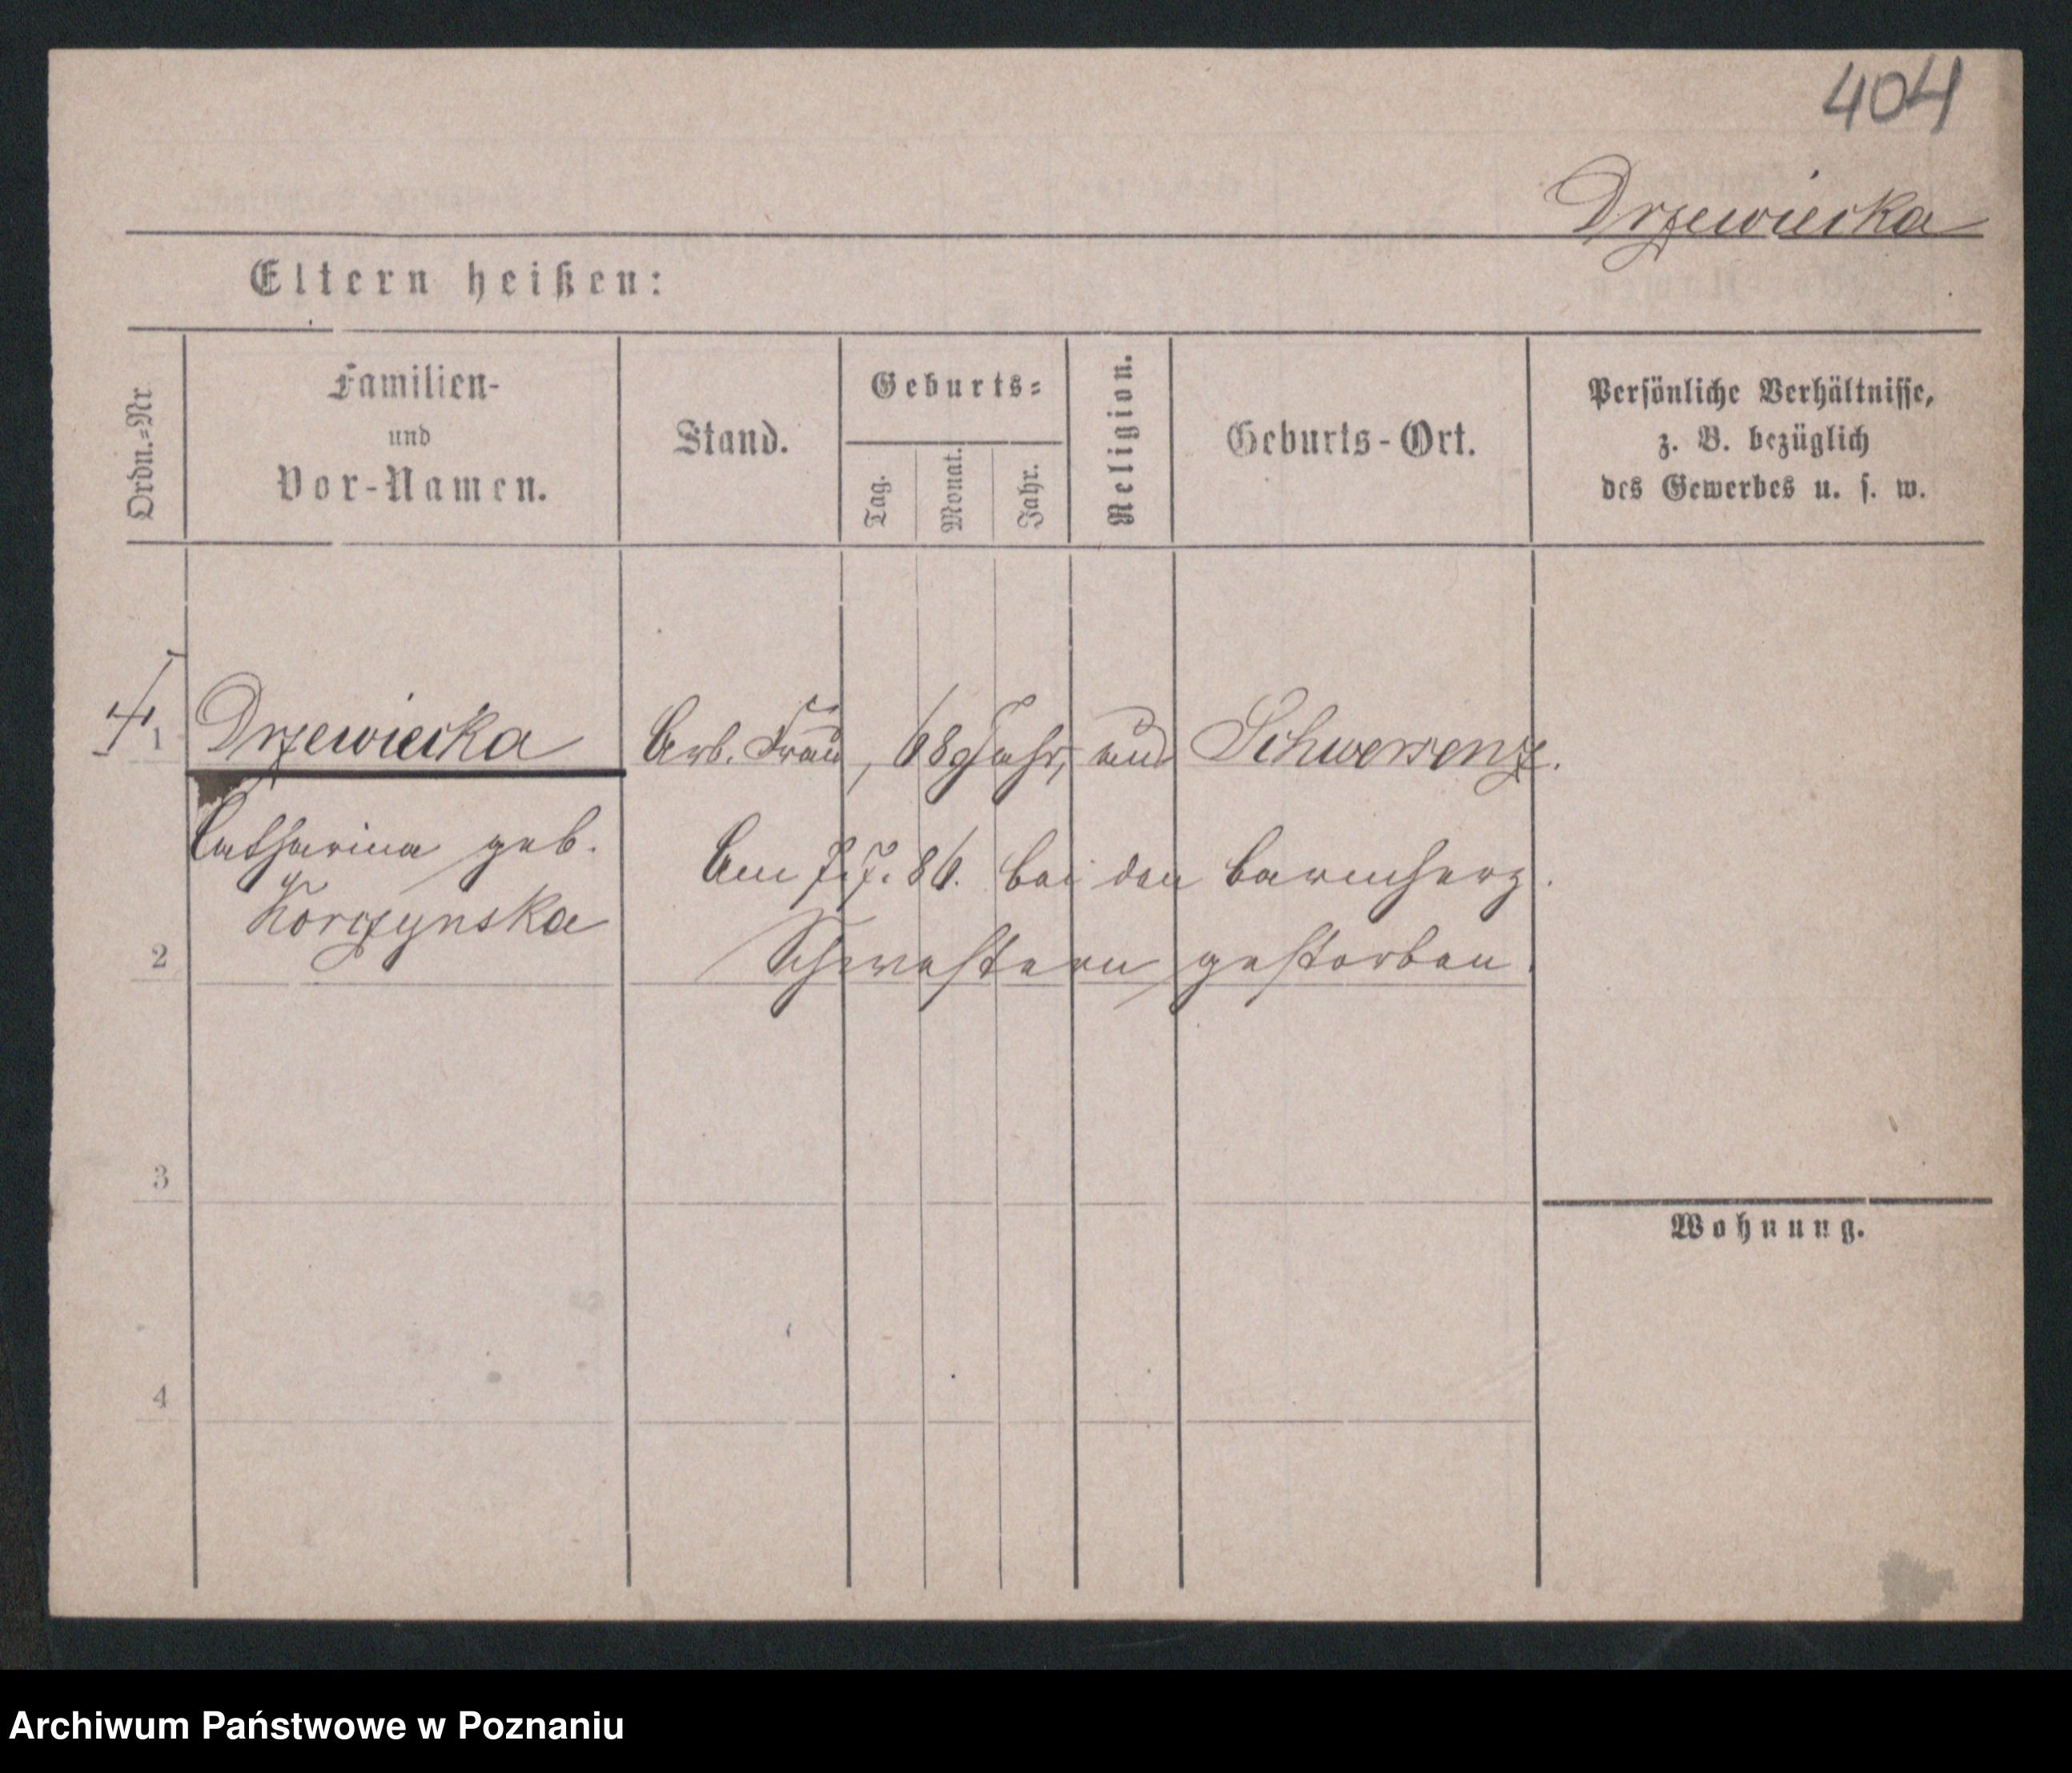 404
Drzewiecka
Eltern heißen:
Ordn.=Nr
Familien-
und
Vor-Namen.
Stand.
Geburts=
Tag.
Monat.
Jahr.
Religion.
Geburts-Ort.
Persönliche Verhältnisse,
z. B. bezüglich
des Gewerbes u. s. w.
1 Drzewiecka Arb. Frau, 68 Jahr, aus Schwersenz.
Catharina geb.
Korczynska
Am 7.7.86. bei den barmherz.
2
Schwestern gestorben.
3
Wohnung.
4
Archiwum Państwowe w Poznaniu